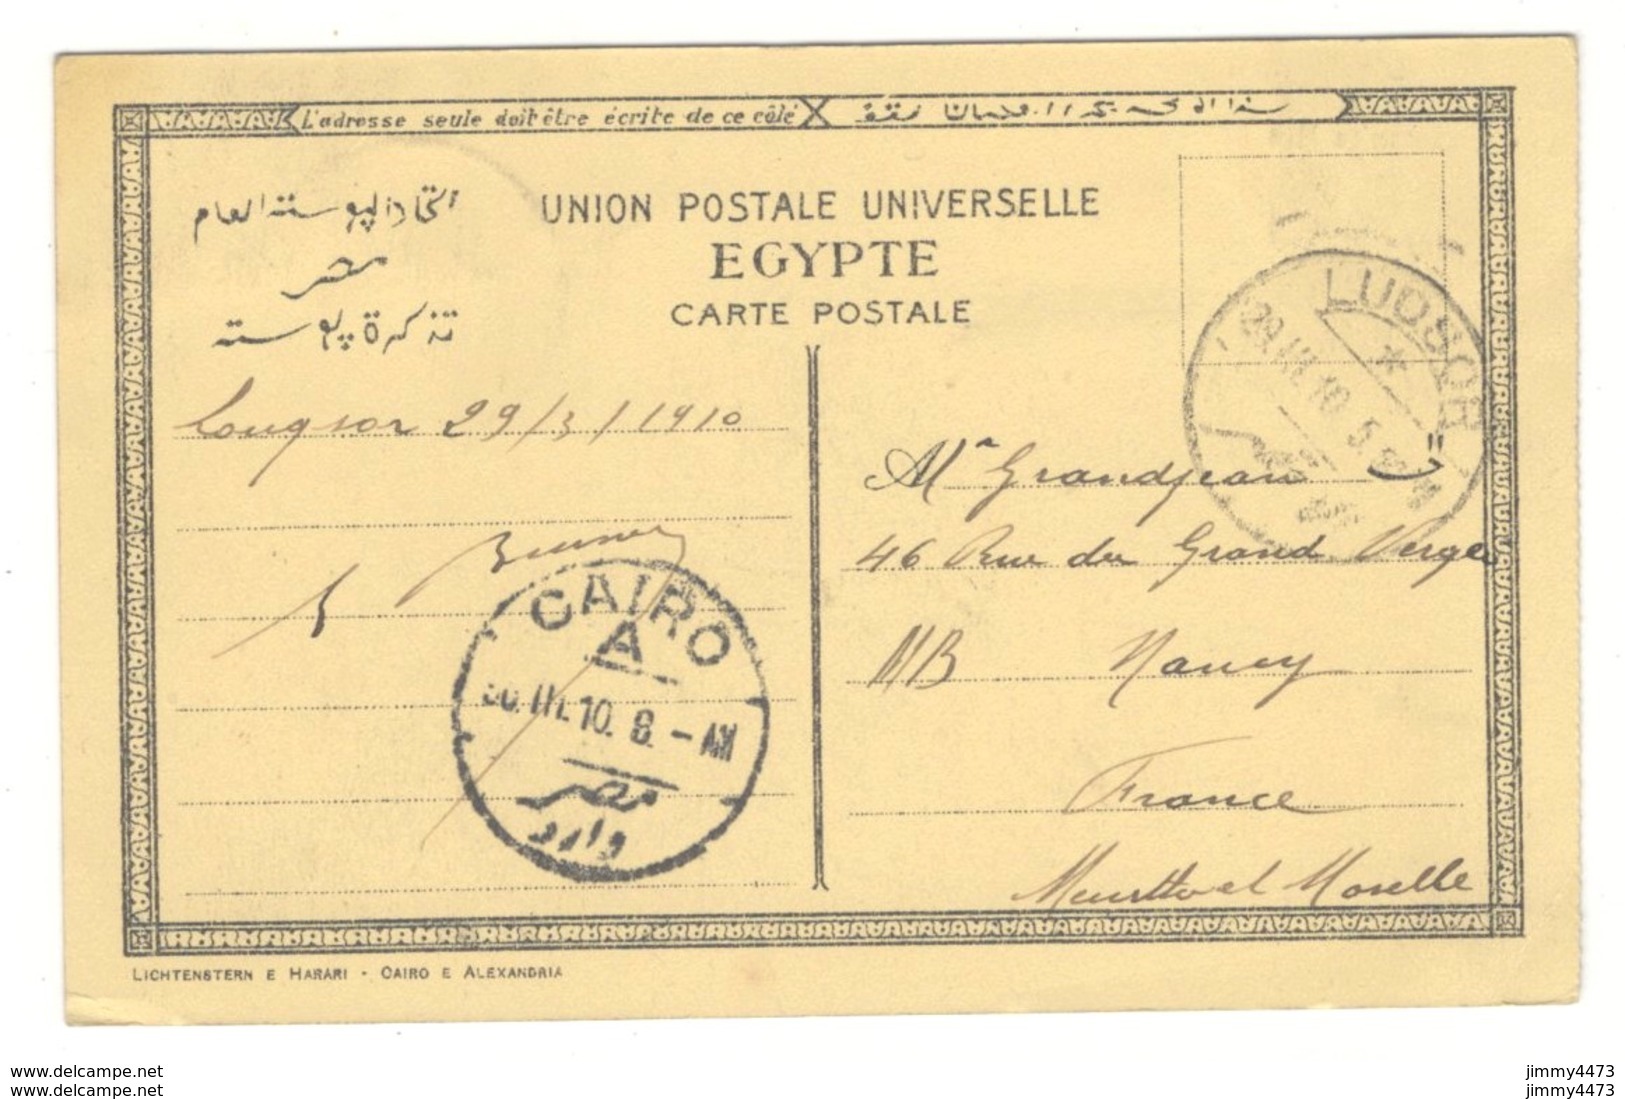 L'adresse seule doit être écrite de ce côté
اتحاد البوسته العام
مصر
تذكرة بوسته
UNION POSTALE UNIVERSELLE
EGYPTE
CARTE POSTALE
LUQSOR
29.III.10 5
Louqsor 29/3/1910
CAIRO
A
30.III.10. 8.-AM
مصر
وارد
Mr Grandjean
46 Rue du Grand Verger
Nancy
France
Meurthe et Moselle
LICHTENSTERN E HARARI - CAIRO E ALEXANDRIA
www.delcampe.net
www.delcampe.net
jimmy4473
jimmy4473